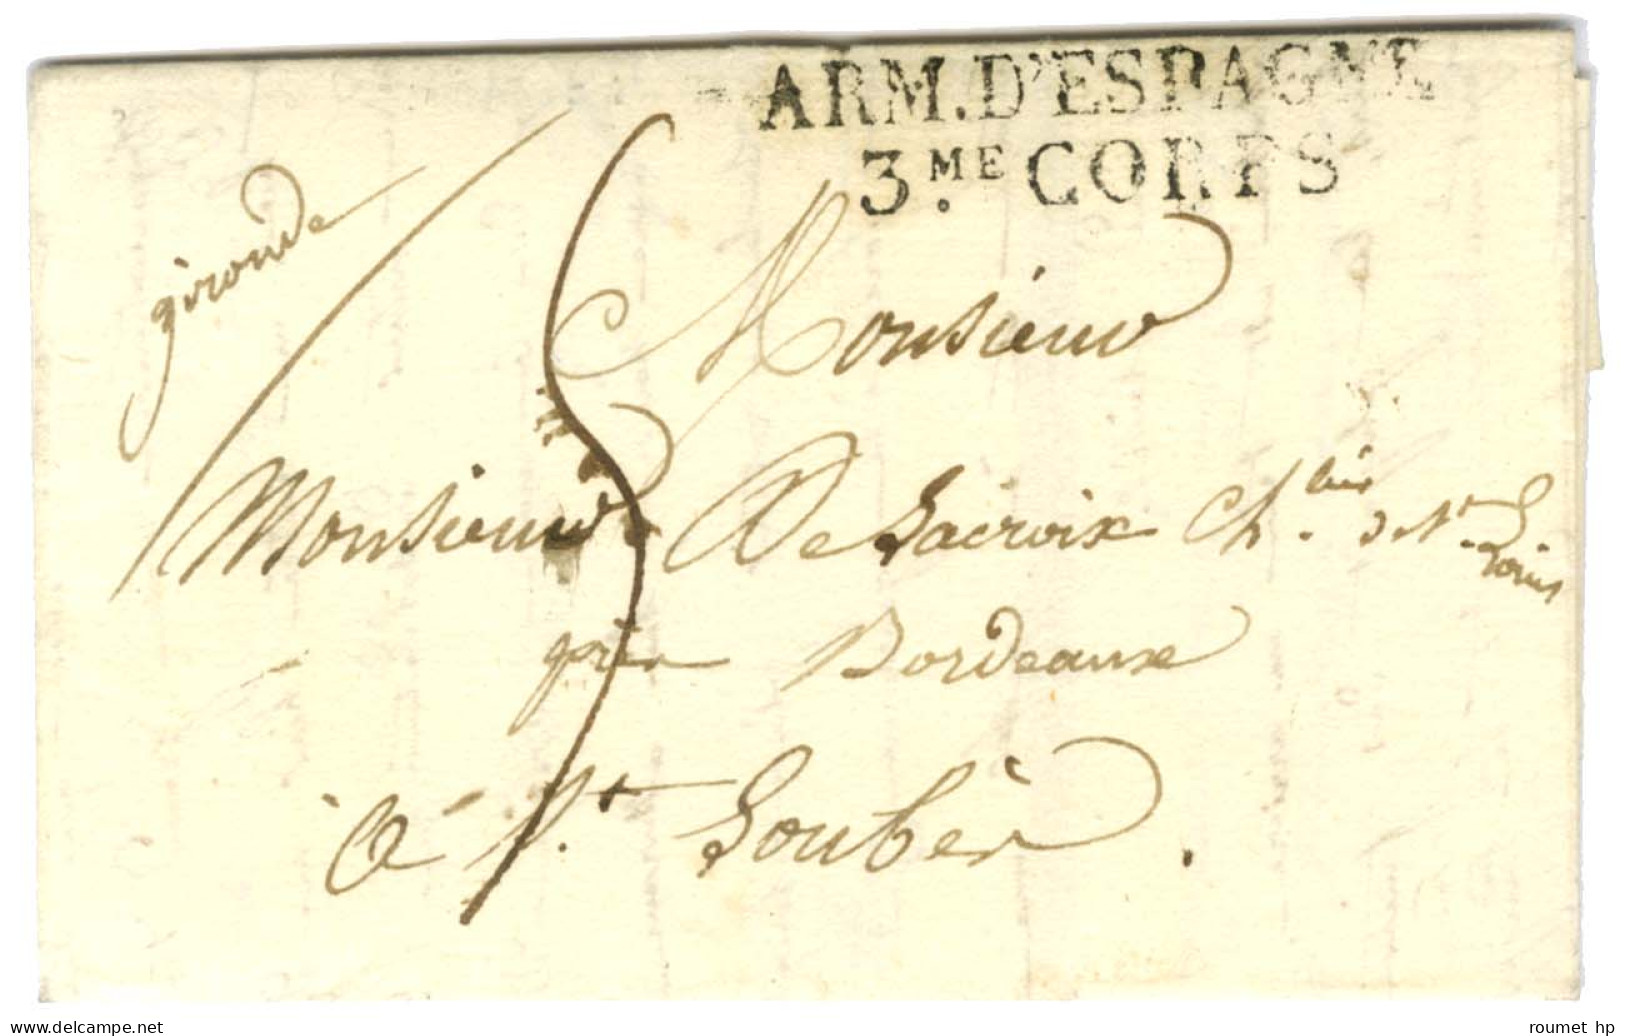 ARM. D'ESPAGNE
3.ME CORPS
gironde
Monsieur
Monsieur De Lacroix Ch.lier de St. Louis
près Bordeaux
à St. Loubès.
www.delcampe.net
roumet hp